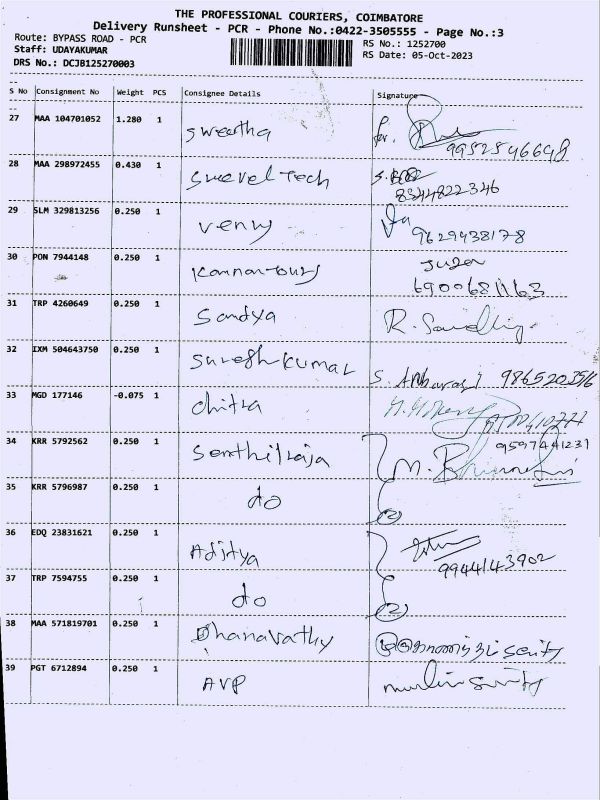 THE PROFESSIONAL COURIERS, COIMBATORE
Delivery Runsheet - PCR - Phone No.:0422-3505555 - Page No.:3
Route: BYPASS ROAD - PCR
Staff: UDAYAKUMAR
DRS No.: DCJB125270003
RS No.: 1252700
RS Date: 05-Oct-2023
S No Consignment No Weight PCS Consignee Details Signature
27 MAA 104701052 1.280 1 Swertha for.
9952546648
28 MAA 298972455 0.430 1
8344822346
29 SLM 329813256 0.250 1 Venus
9629438178
30 PON 7944148 0.250 1 Kannan tours
6900681163
31 TRP 4260649 0.250 1 Sandya R.
32 IXM 504643750 0.250 1 Sureshkumar S. Anbarasi 9865203516
33 MGD 177146 -0.075 1 chitra
9597441231
34 KRR 5792562 0.250 1 Senthilraja M.
35 KRR 5796987 0.250 1 do (2)
36 EDQ 23831621 0.250 1 Aditya
9944143902
37 TRP 7594755 0.250 1 do (2)
38 MAA 571819701 0.250 1 Dhanavathy
39 PGT 6712894 0.250 1 AVP